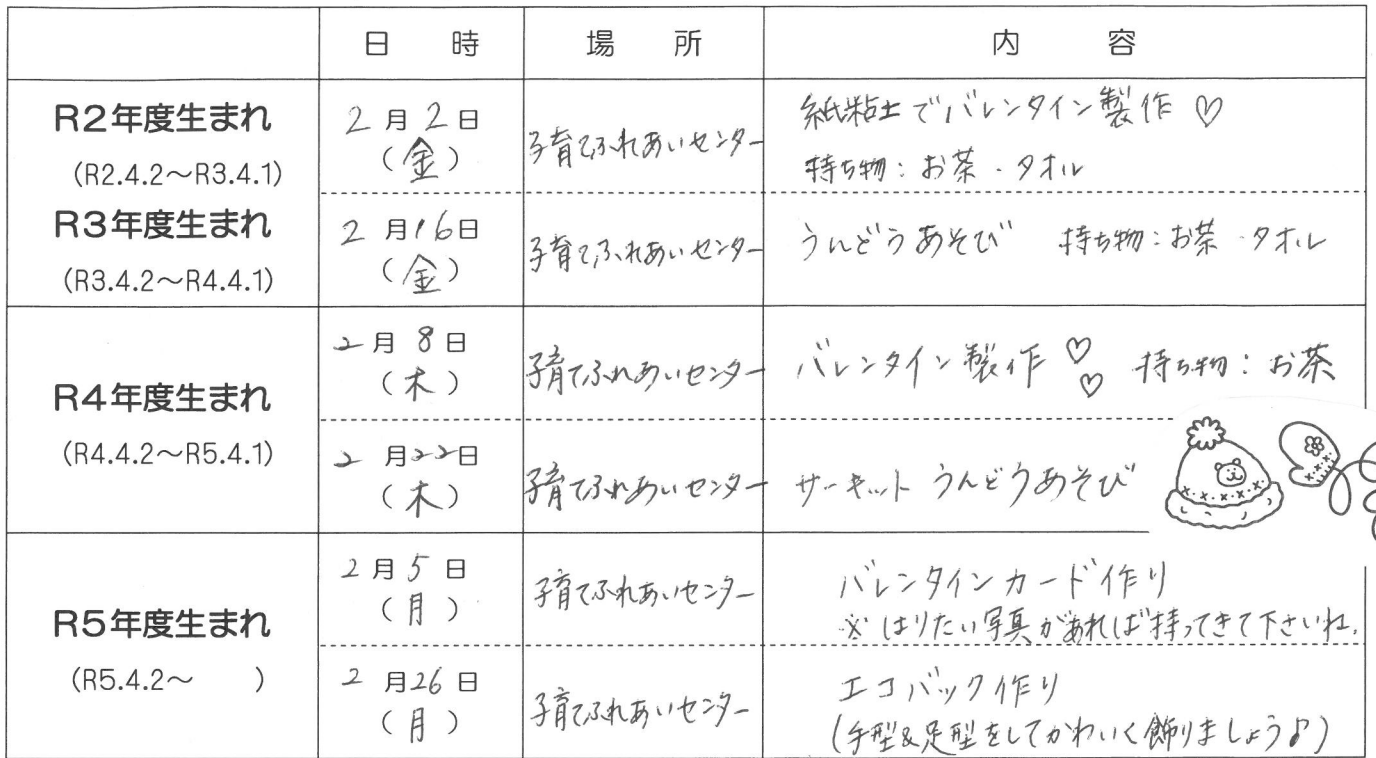 日　時　場　所　内　容
R2年度生まれ
(R2.4.2～R3.4.1)
2月2日
(金)
子育てふれあいセンター
紙粘土でバレンタイン製作♡
持ち物：お茶・タオル
R3年度生まれ
(R3.4.2～R4.4.1)
2月16日
(金)
子育てふれあいセンター
うんどうあそび　持ち物：お茶・タオル
R4年度生まれ
(R4.4.2～R5.4.1)
2月8日
(木)
子育てふれあいセンター
バレンタイン製作♡♡　持ち物：お茶
2月22日
(木)
子育てふれあいセンター
サーキット うんどうあそび
R5年度生まれ
(R5.4.2～　　)
2月5日
(月)
子育てふれあいセンター
バレンタインカード作り
※はりたい写真があれば持ってきて下さいね。
2月26日
(月)
子育てふれあいセンター
エコバック作り
(手型&足型をしてかわいく飾りましょう♪)